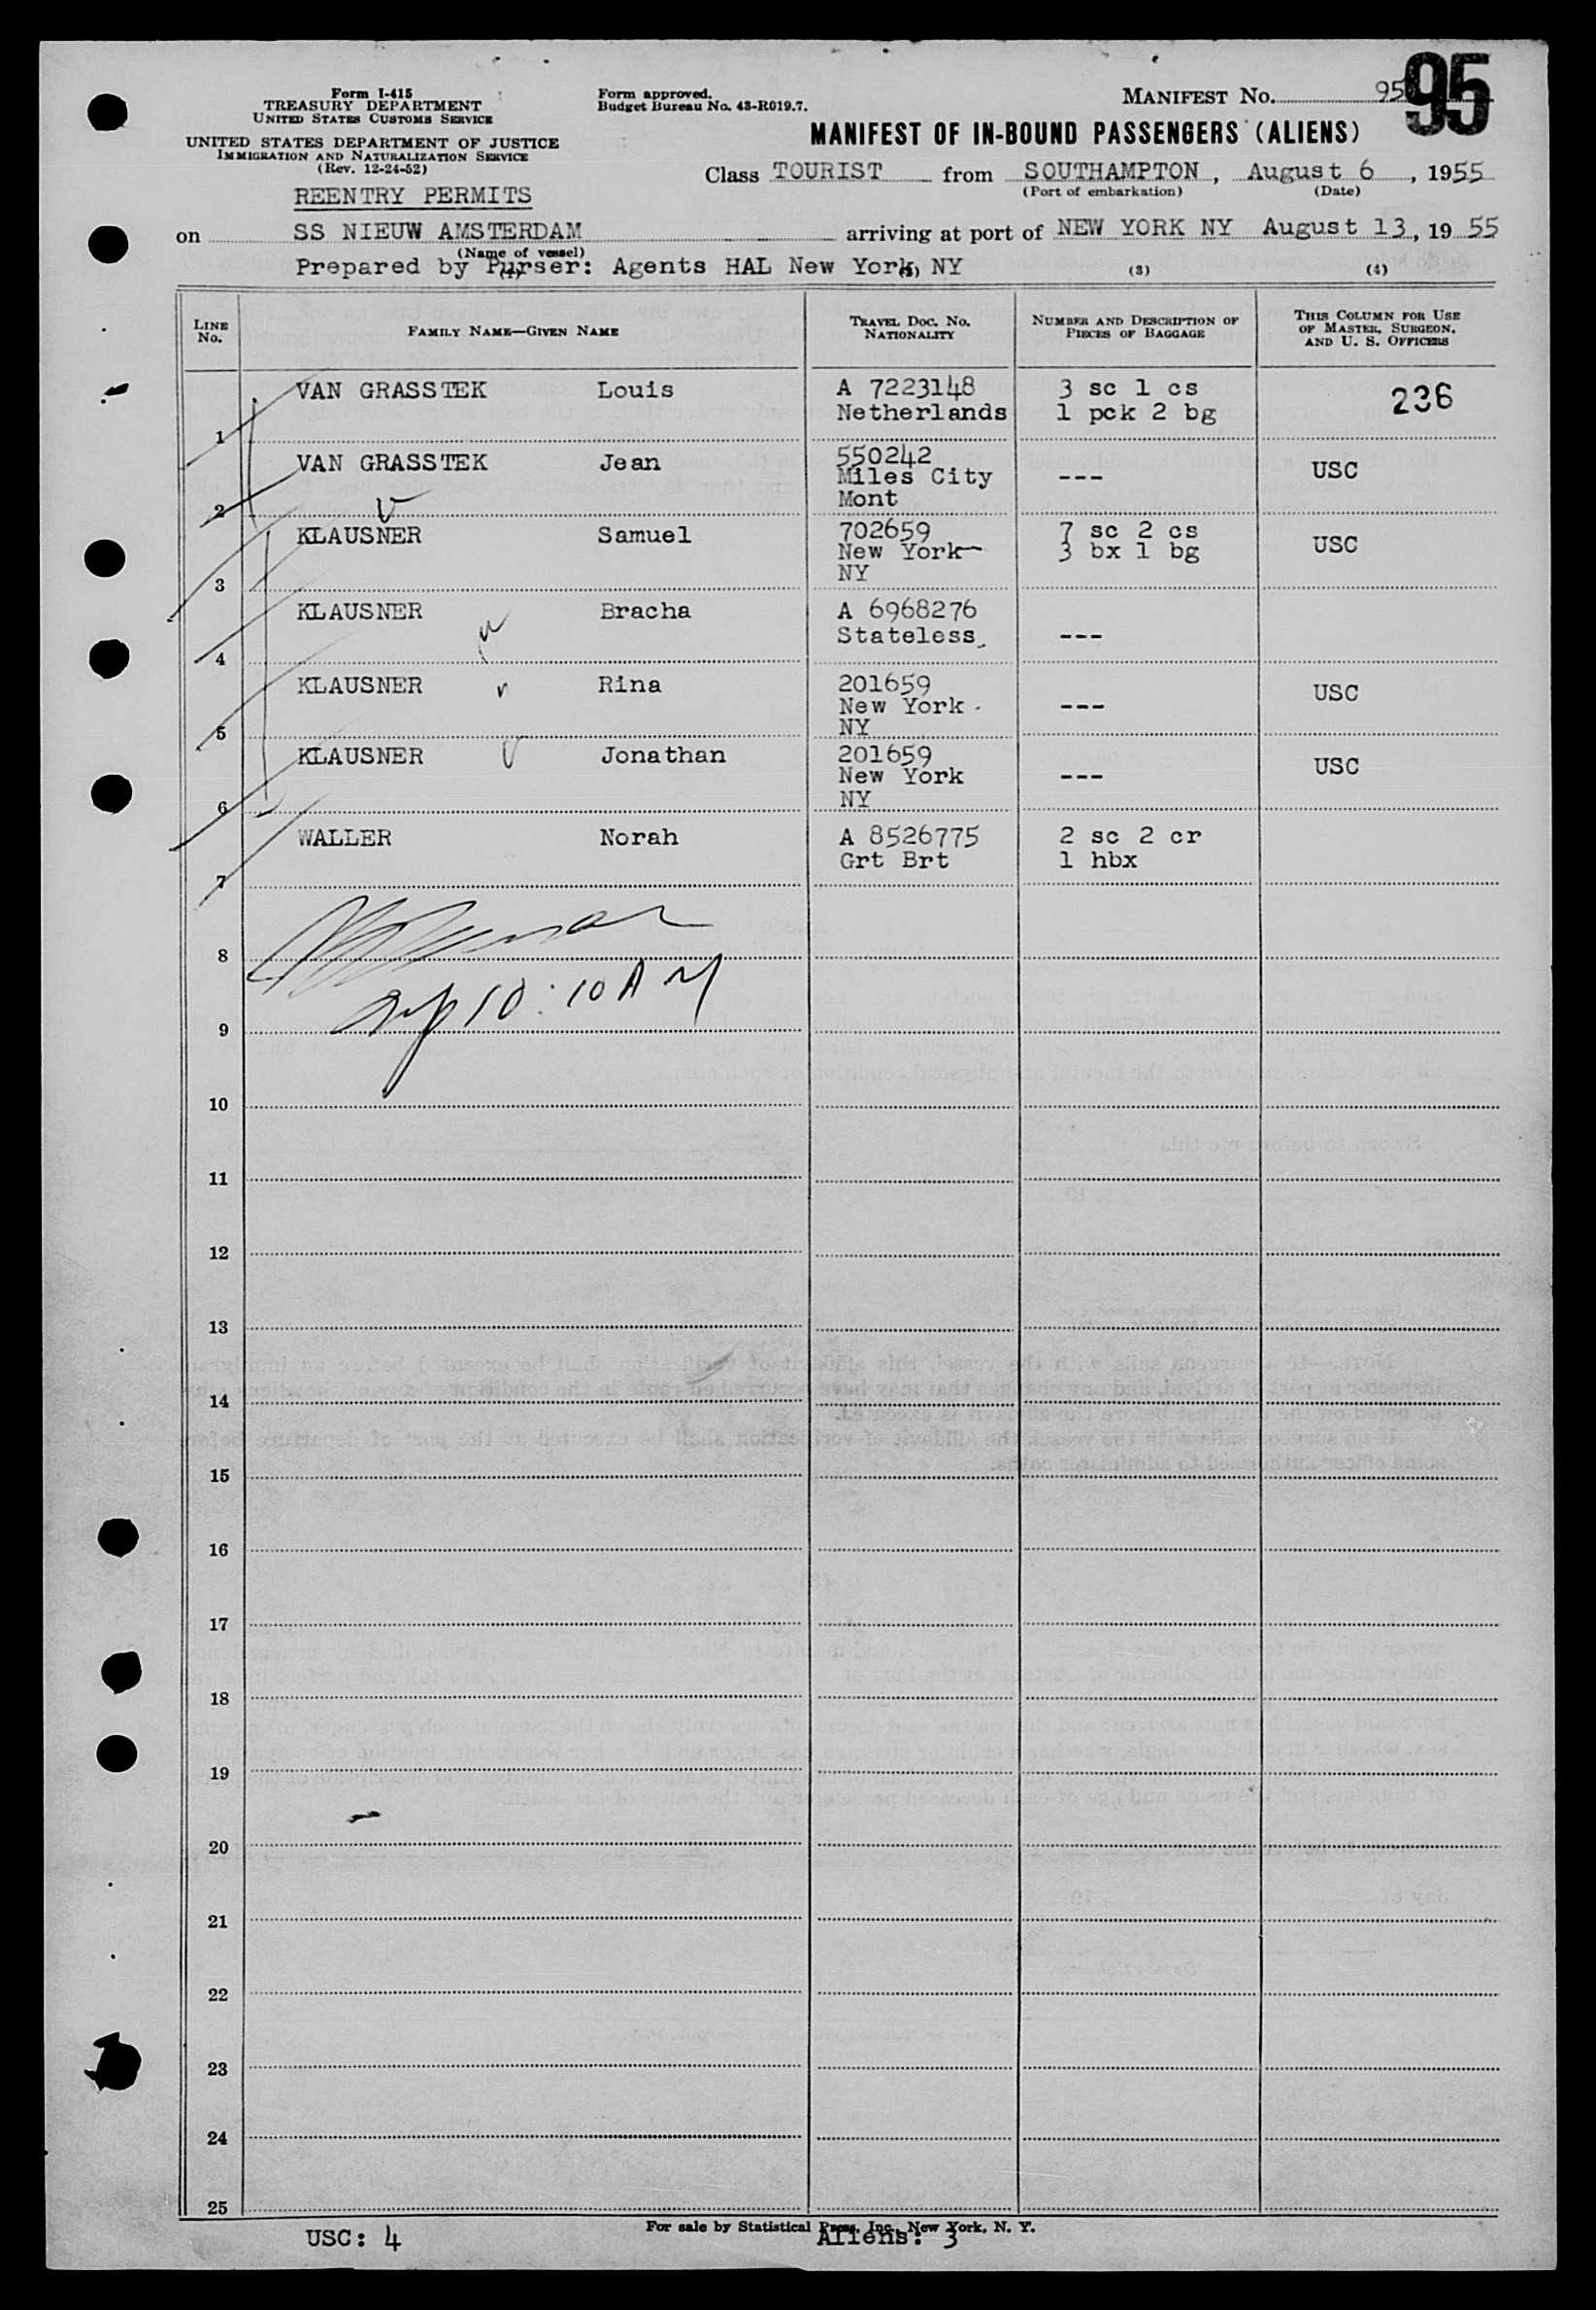 Form I-415
TREASURY DEPARTMENT
UNITED STATES CUSTOMS SERVICE
UNITED STATES DEPARTMENT OF JUSTICE
IMMIGRATION AND NATURALIZATION SERVICE
(Rev. 12-24-52)
REENTRY PERMITS
Form approved.
Budget Bureau No. 43-R019.7.
MANIFEST No. 95
95
MANIFEST OF IN-BOUND PASSENGERS (ALIENS)
Class TOURIST from SOUTHAMPTON, August 6, 1955
(Port of embarkation) (Date)
on SS NIEUW AMSTERDAM arriving at port of NEW YORK NY August 13, 19 55
(Name of vessel)
Prepared by Purser: Agents HAL New York, NY
(3) (4)
LINE No. FAMILY NAME—GIVEN NAME TRAVEL DOC. No. NATIONALITY NUMBER AND DESCRIPTION OF PIECES OF BAGGAGE THIS COLUMN FOR USE OF MASTER, SURGEON, AND U. S. OFFICERS
VAN GRASSTEK Louis A 7223148 3 sc 1 cs 236
Netherlands 1 pck 2 bg
1
VAN GRASSTEK Jean 550242
Miles City --- USC
Mont
2
KLAUSNER Samuel 702659 7 sc 2 cs
New York 3 bx 1 bg USC
NY
3
KLAUSNER Bracha A 6968276
Stateless ---
4
KLAUSNER Rina 201659 USC
New York ---
NY
5
KLAUSNER Jonathan 201659 USC
New York ---
NY
6
WALLER Norah A 8526775 2 sc 2 cr
Grt Brt 1 hbx
7
8
10:10 AM
9
10
11
12
13
14
15
16
17
18
19
20
21
22
23
24
25
For sale by Statistical Press, Inc., New York, N. Y.
USC: 4 Aliens: 3